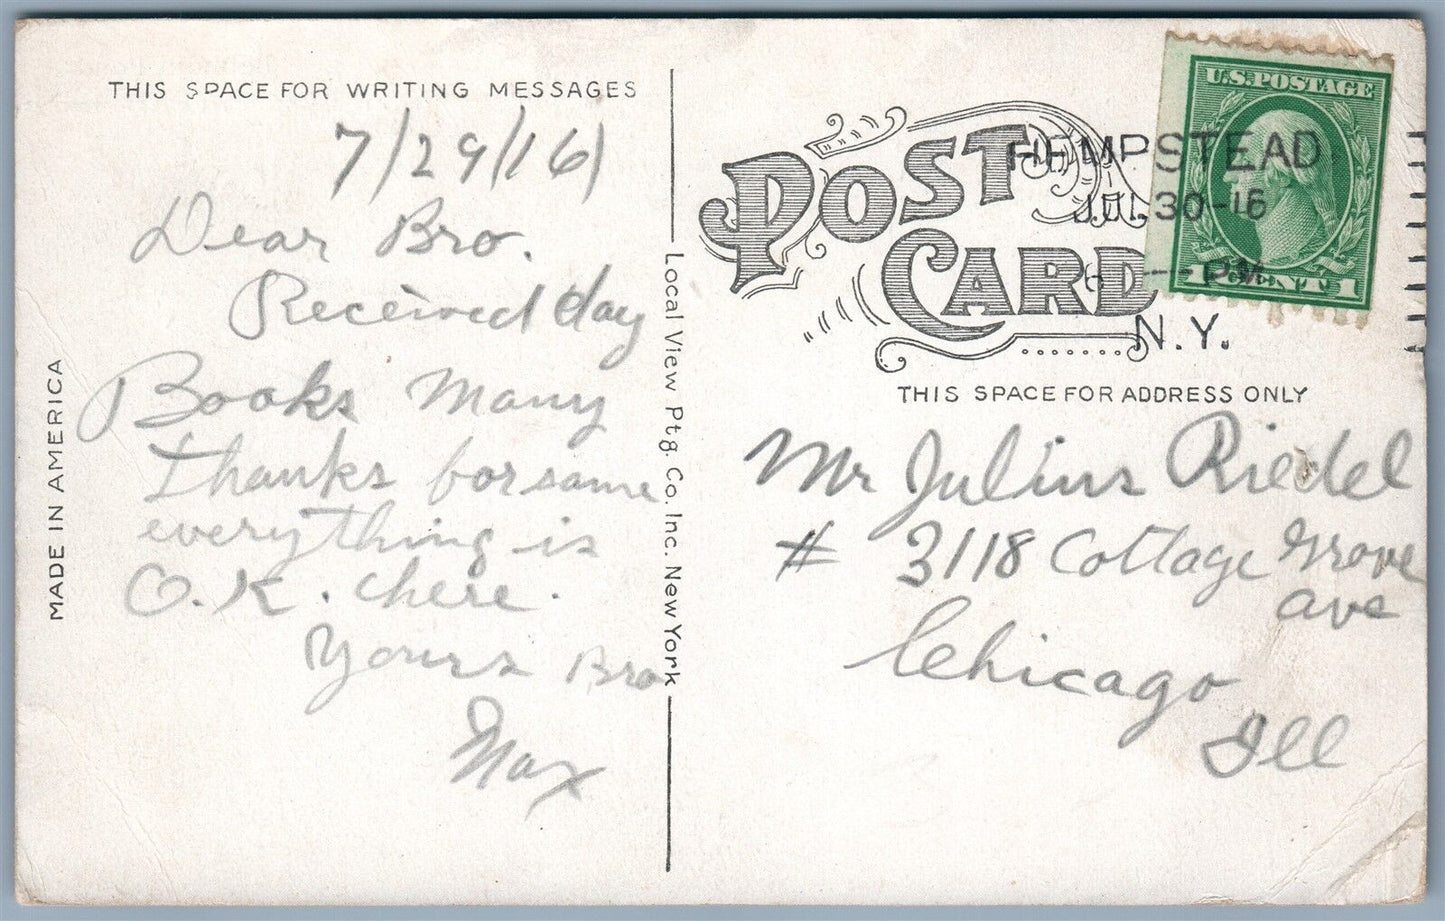 THIS SPACE FOR WRITING MESSAGES
7/29/16
Dear Bro.
Received day
Books Many
thanks for same
everything is
O.K. here.
Yours Bro
Max
MADE IN AMERICA
Local View Ptg. Co. Inc. New York
POST CARD
HEMPSTEAD
JUL 30-16
6 -- PM
N.Y.
U.S. POSTAGE
1 CENT 1
THIS SPACE FOR ADDRESS ONLY
Mr Julius Riedel
# 3118 Cottage Grove
ave
Chicago
Ill